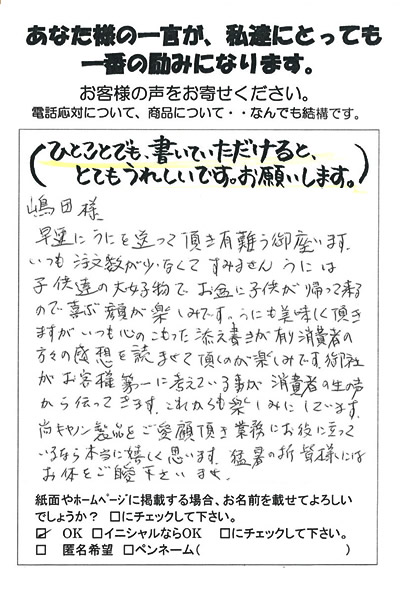 あなた様の一言が、私達にとっても
一番の励みになります。
お客様の声をお寄せください。
電話応対について、商品について・・なんでも結構です。
(ひとことでも、書いていただけると、
とてもうれしいです。お願いします。)
嶋田様
早速にうにを送って頂き有難う御座います。
いつも注文数が少なくてすみません うには
子供達の大好物で お盆に子供が帰って来る
ので喜ぶ顔が楽しみです。うにも美味しく頂き
ますが いつも心のこもった添え書きが有り 消費者の
方々の感想を読ませて頂くのが楽しみです。御社
がお客様第一に考えている事が 消費者の生の声
から伝ってきます。これからも楽しみにしています。
尚キヤノン製品をご愛顧頂き業務にお役に立って
いるなら本当に嬉しく思います。猛暑の折 皆様には
お体をご自愛下さいませ。
紙面やホームページに掲載する場合、お名前を載せてよろしい
でしょうか? □にチェックして下さい。
☑ OK □イニシャルならOK □にチェックして下さい。
□ 匿名希望 □ペンネーム( )